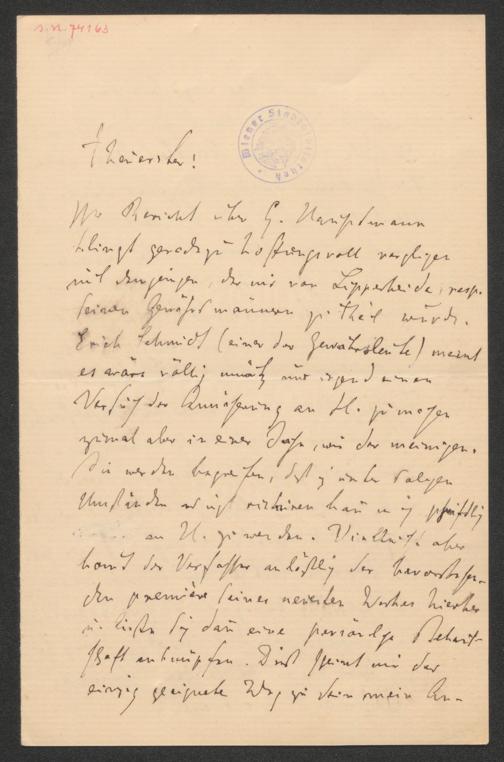 J.N. 74163
Wiener Stadtbibliothek
Theuerster!
Ihr Bericht über G. Hauptmann
klingt geradezu hoffnungsvoll verglichen
mit demjenigen, der mir von Lipperheide, resp.
seinen Gewährsmännern zu theil wurde.
Erich Schmidt (einer der Gewährsleute) meint
es wäre völlig unnütz nur irgend einen
Versuch der Annäherung an H. zu machen
zumal aber in einer Sache, wie der meinigen.
Sie werden begreifen, daß ich unter solchen
Umständen es nicht riskiren kann mich schriftlich
an H. zu wenden. Vielleicht aber
kommt der Verfasser anläßlich der bevorstehen-
den première seines neuesten Werkes hierher
u. ließe sich dann eine persönliche Bekannt-
schaft anknüpfen. Dieß scheint mir der
einzig geeignete Weg zu sein mein An-